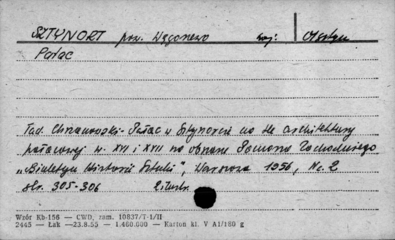 SZTYNORT pow. Węgorzewo woj: Olsztyn
Pałac
Tad. Chrzanowski - Pałac w Sztynorcie na tle architektury
pałacowej w. XVII i XVIII na obszarze Pomorza Zachodniego
„Biuletyn Historii Sztuki", Warszawa 1956, Nr. 2
str. 305-306
Wzór Kb-156 — CWD, zam. 10837/T-1/II
2445 — Łak —23.8.55 — 1.460.000 — Karton kl. V A1/180 g